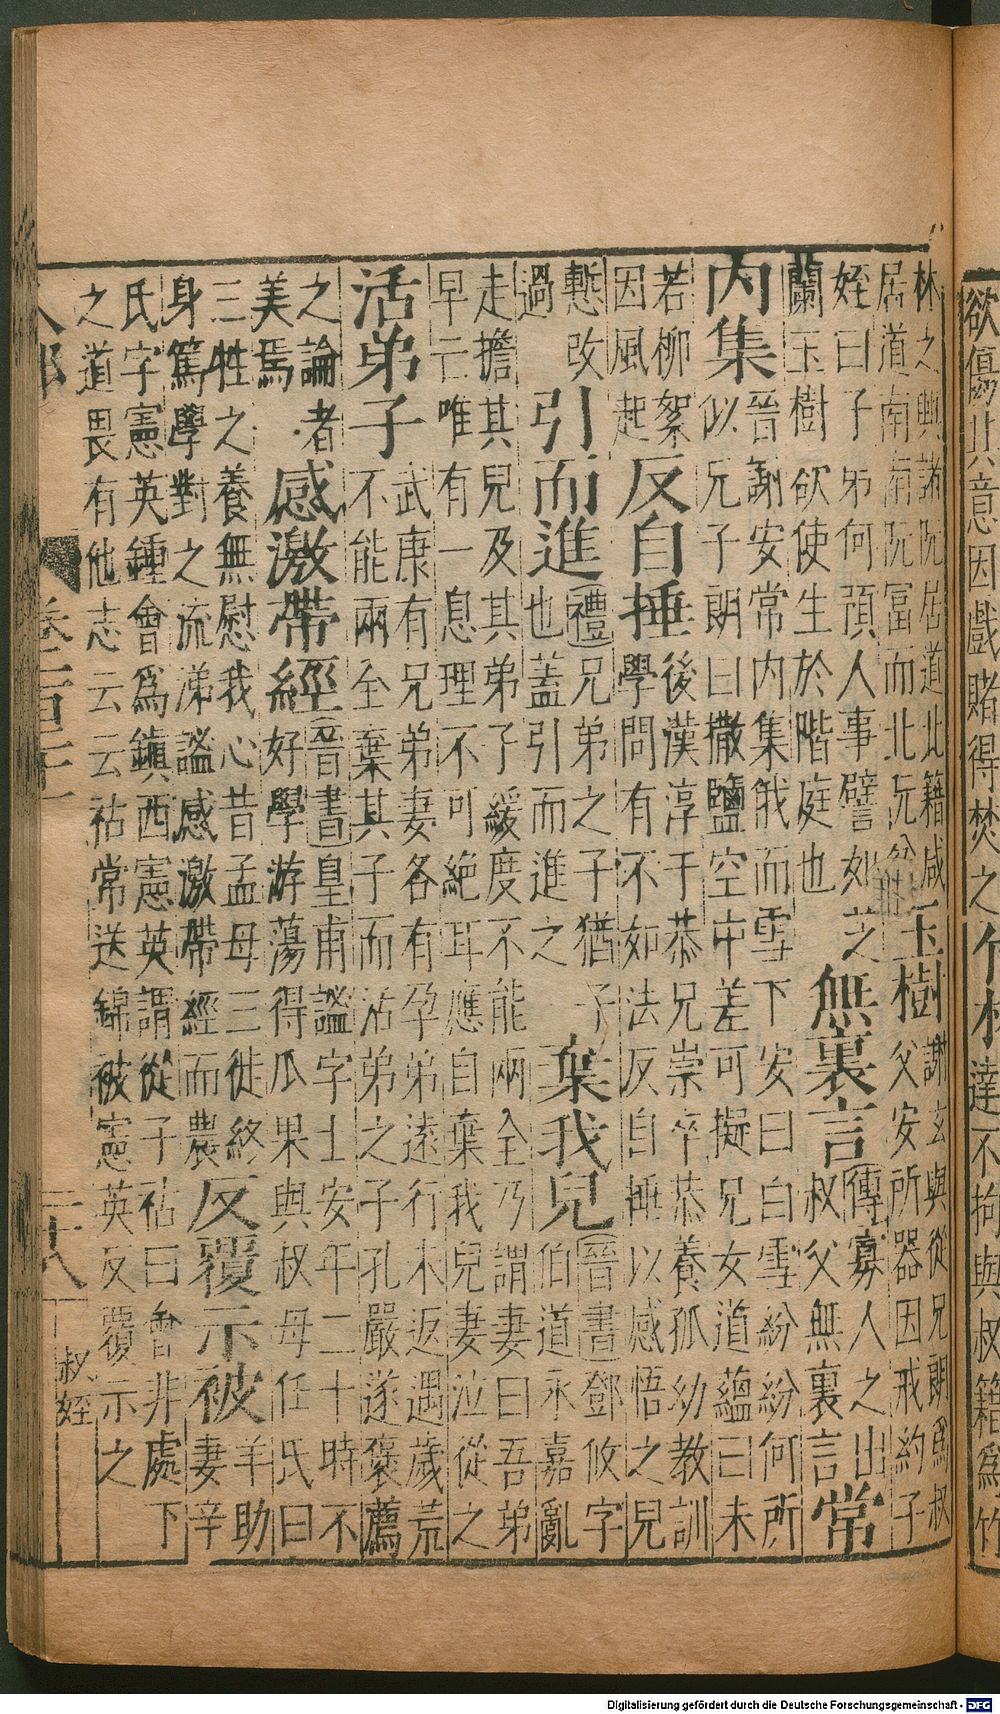 欲傷此意因戲賭得焚之竹林達不拘與叔籍為竹
林之興諸阮居道北籍咸
居道南南阮富而北阮貧
玉樹
謝玄與從兄朗為叔
父安所器因戒約子
姪曰子弟何預人事譬如芝
蘭玉樹欲使生於階庭也
無裏言
傳寡人之出
叔父無裏言
常
内集
晉謝安常内集俄而雪下安曰白雪紛紛何所
似兄子朗曰撒鹽空中差可擬兄女道蘊曰未
若柳絮
因風起
反自捶
後漢淳于恭兄崇卒恭養孤幼教訓
學問有不如法反自捶以感悟之兒
慙改
過
引而進
禮兄弟之子猶子
也蓋引而進之
棄我兒
晉書鄧攸字
伯道永嘉亂
走擔其兒及其弟子緩度不能兩全乃謂妻曰吾弟
早亡唯有一息理不可絶耳應自棄我兒妻泣從之
活弟子
武康有兄弟妻各有孕弟遠行未返遇歲荒
不能兩全棄其子而活弟之子孔嚴遂褒薦
之論者
美焉
感激帶經
晉書皇甫謐字士安年二十時不
好學游蕩得瓜果與叔母任氏曰
三牲之養無慰我心昔孟母三徙終
身篤學對之流涕謐感激帶經而農
反覆示被
羊助
妻辛
氏字憲英鍾會為鎮西憲英謂從子祜曰會非處下
之道畏有他志云云祜常送錦被憲英反覆示之
二十八
叔姪
Digitalisierung gefördert durch die Deutsche Forschungsgemeinschaft - DFG